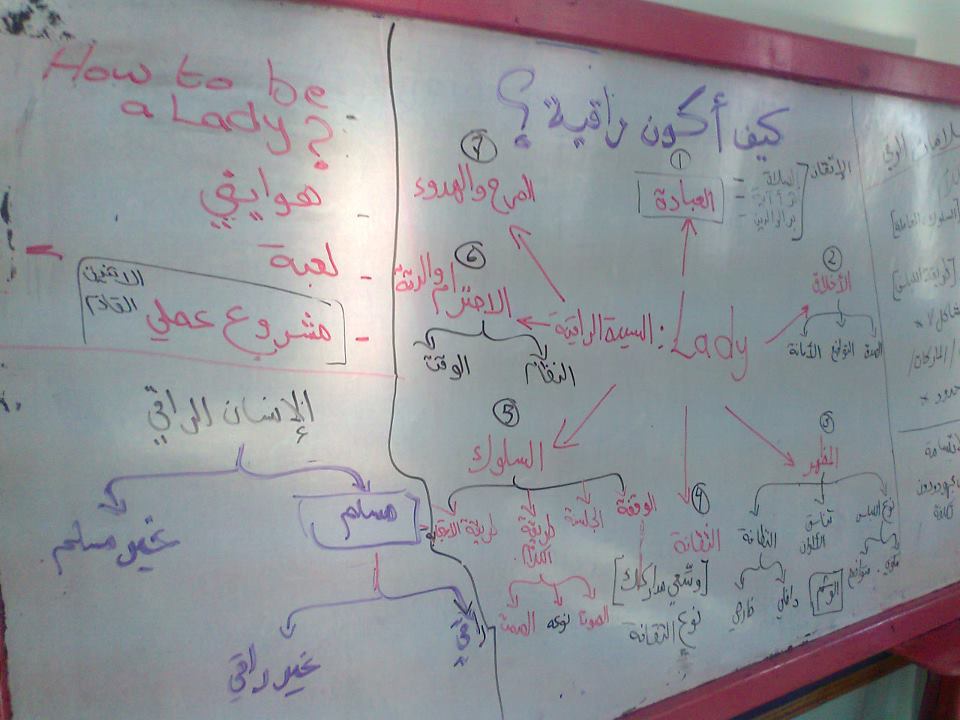 How to be
a Lady?
هوايتي
- لعبة
- مشروع عملي
الاثنين
القادم
الإنسان الراقي
مسلم
غير مسلم
غير راقي
كيف أكون راقية؟
السيدة الراقية: Lady
①
العبادة
- الصلاة
- بر الوالدين
②
الأخلاق
الصدق
التواضع
الأمانة
③
المظهر
نوع اللبس
تناسق
الألوان
النظافة
داخلي
خارجي
④
الثقافة
[وسّعي مداركك]
نوع الثقافة
⑤
السلوك
الوقفة
الجلسة
طريقة
الكلام
طريقة
الصوت
نوعه
الصمت
⑥
الاحترام والرقة
النظام
الوقت
⑦
المرح والهدوء